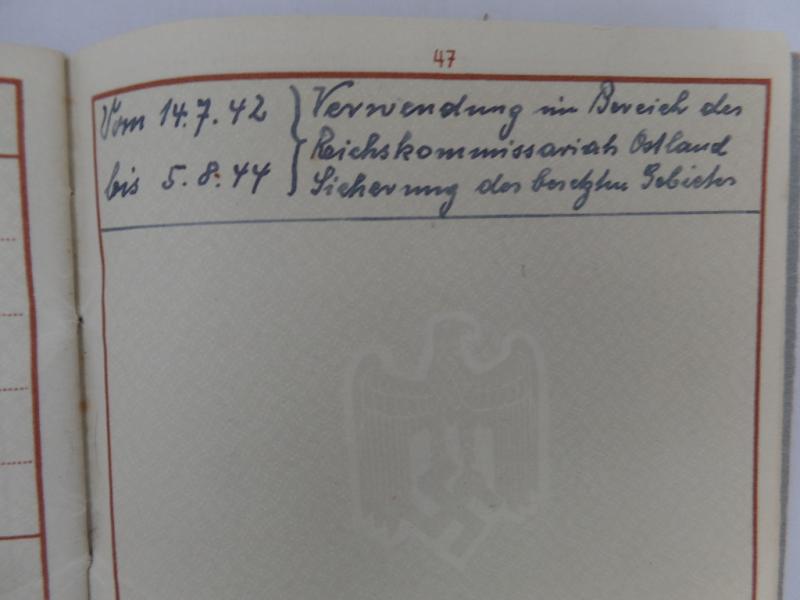 47
Vom 14.7.42 } Verwendung im Bereich des
Reichskommissariats Ostland
bis 5.8.44 Sicherung des besetzten Gebietes